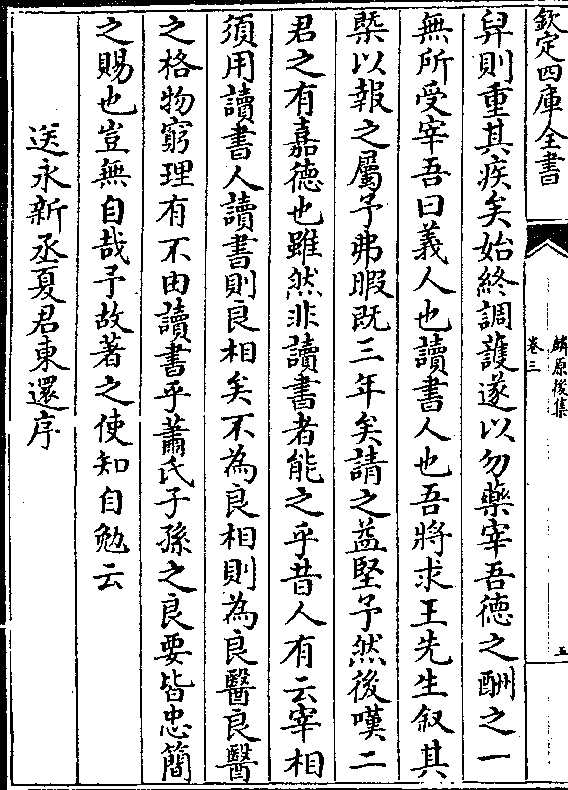 欽定四庫全書
麟原後集
卷三
五
舁則重其疾矣始終調護遂以勿藥宰吾徳之酬之一
無所受宰吾曰義人也讀書人也吾將求王先生叙其
槩以報之屬予弗暇既三年矣請之益堅予然後嘆二
君之有嘉德也雖然非讀書者能之乎昔人有云宰相
須用讀書人讀書則良相矣不為良相則為良醫良醫
之格物窮理有不由讀書乎蕭氏子孫之良要皆忠簡
之賜也豈無自哉予故著之使知自勉云
送永新丞夏君東還序